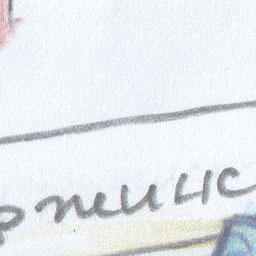 ржинс